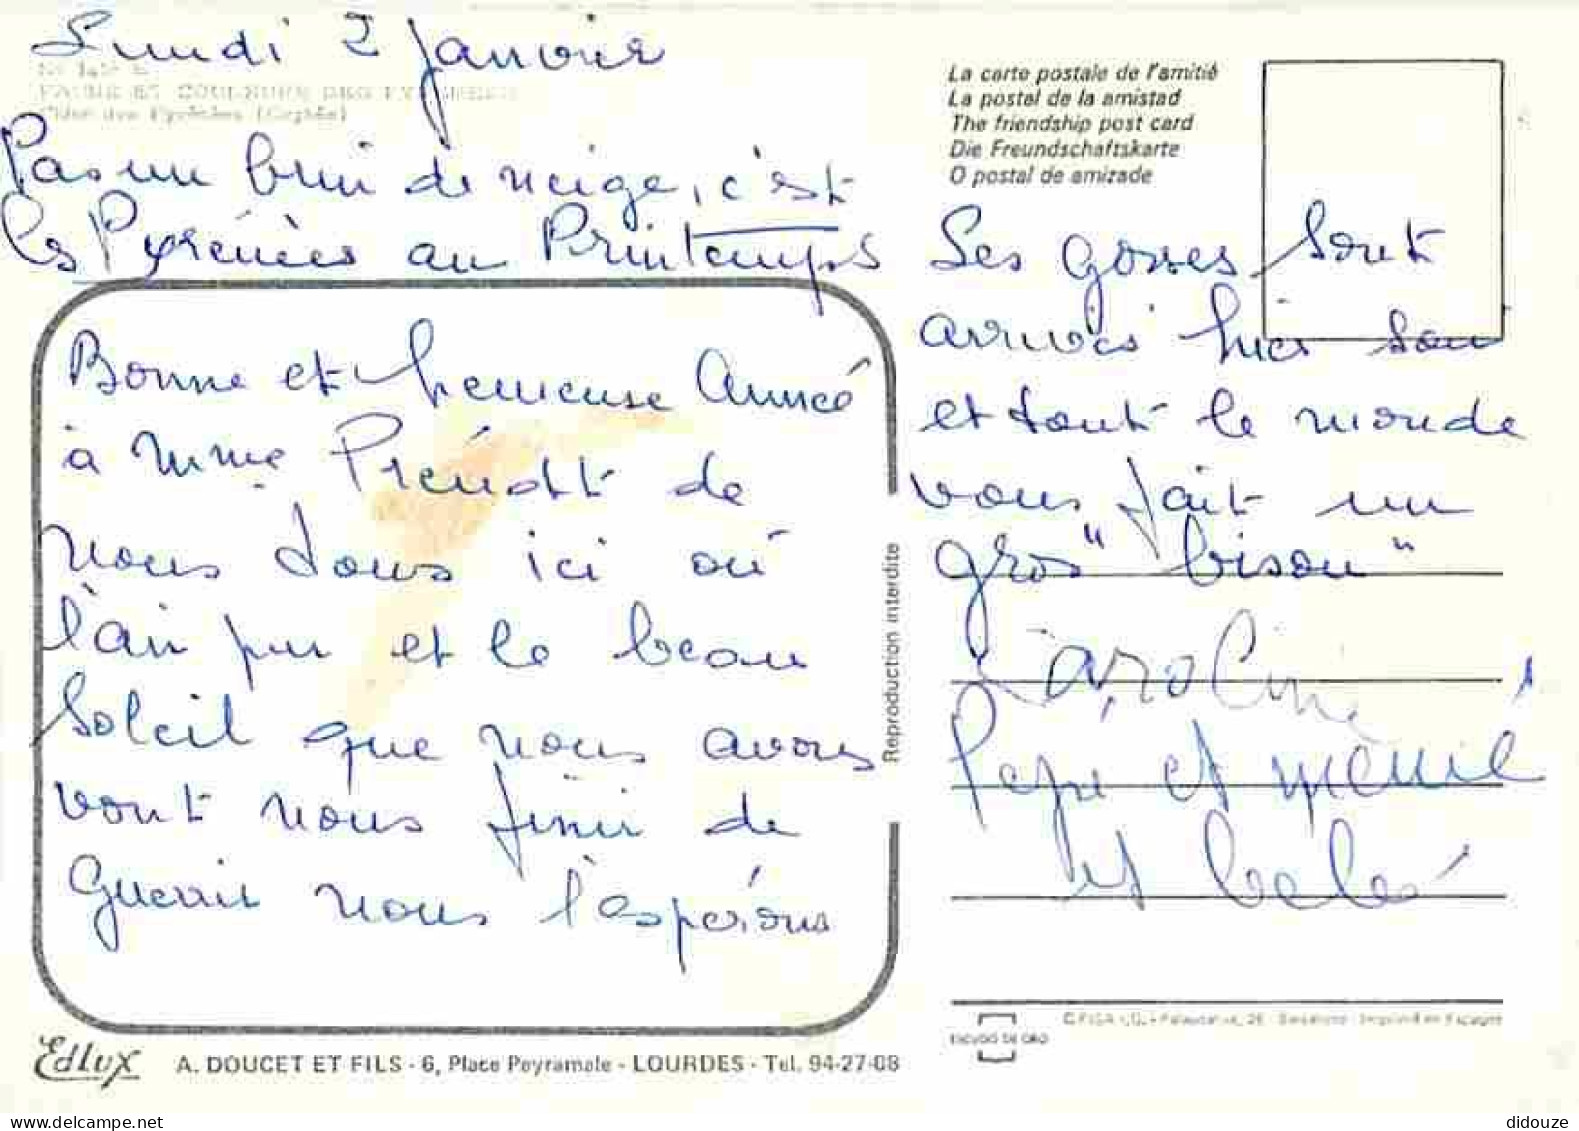 Lundi 2 janvier
FAUNE ET COULEURS DES PYRENEES
Pas un brin de neige, c'est
les Pyrénées au Printemps
Bonne et heureuse Année
à Mme de
nous tous ici où
l'air pur et le beau
soleil que nous avons
vont nous finir de
guerrir nous l'espérons
La carte postale de l'amitié
La postal de la amistad
The friendship post card
Die Freundschaftskarte
O postal de amizade
Les gosses sont
arrivés hier soir
et tout le monde
vous fait un
gros "bisou"
Caroline
Pepé et mémé
et bebé
Reproduction interdite
Edlux A. DOUCET ET FILS - 6, Place Peyramale - LOURDES - Tel. 94-27-08
ESCUDO DE ORO
delcampe.net
didouze